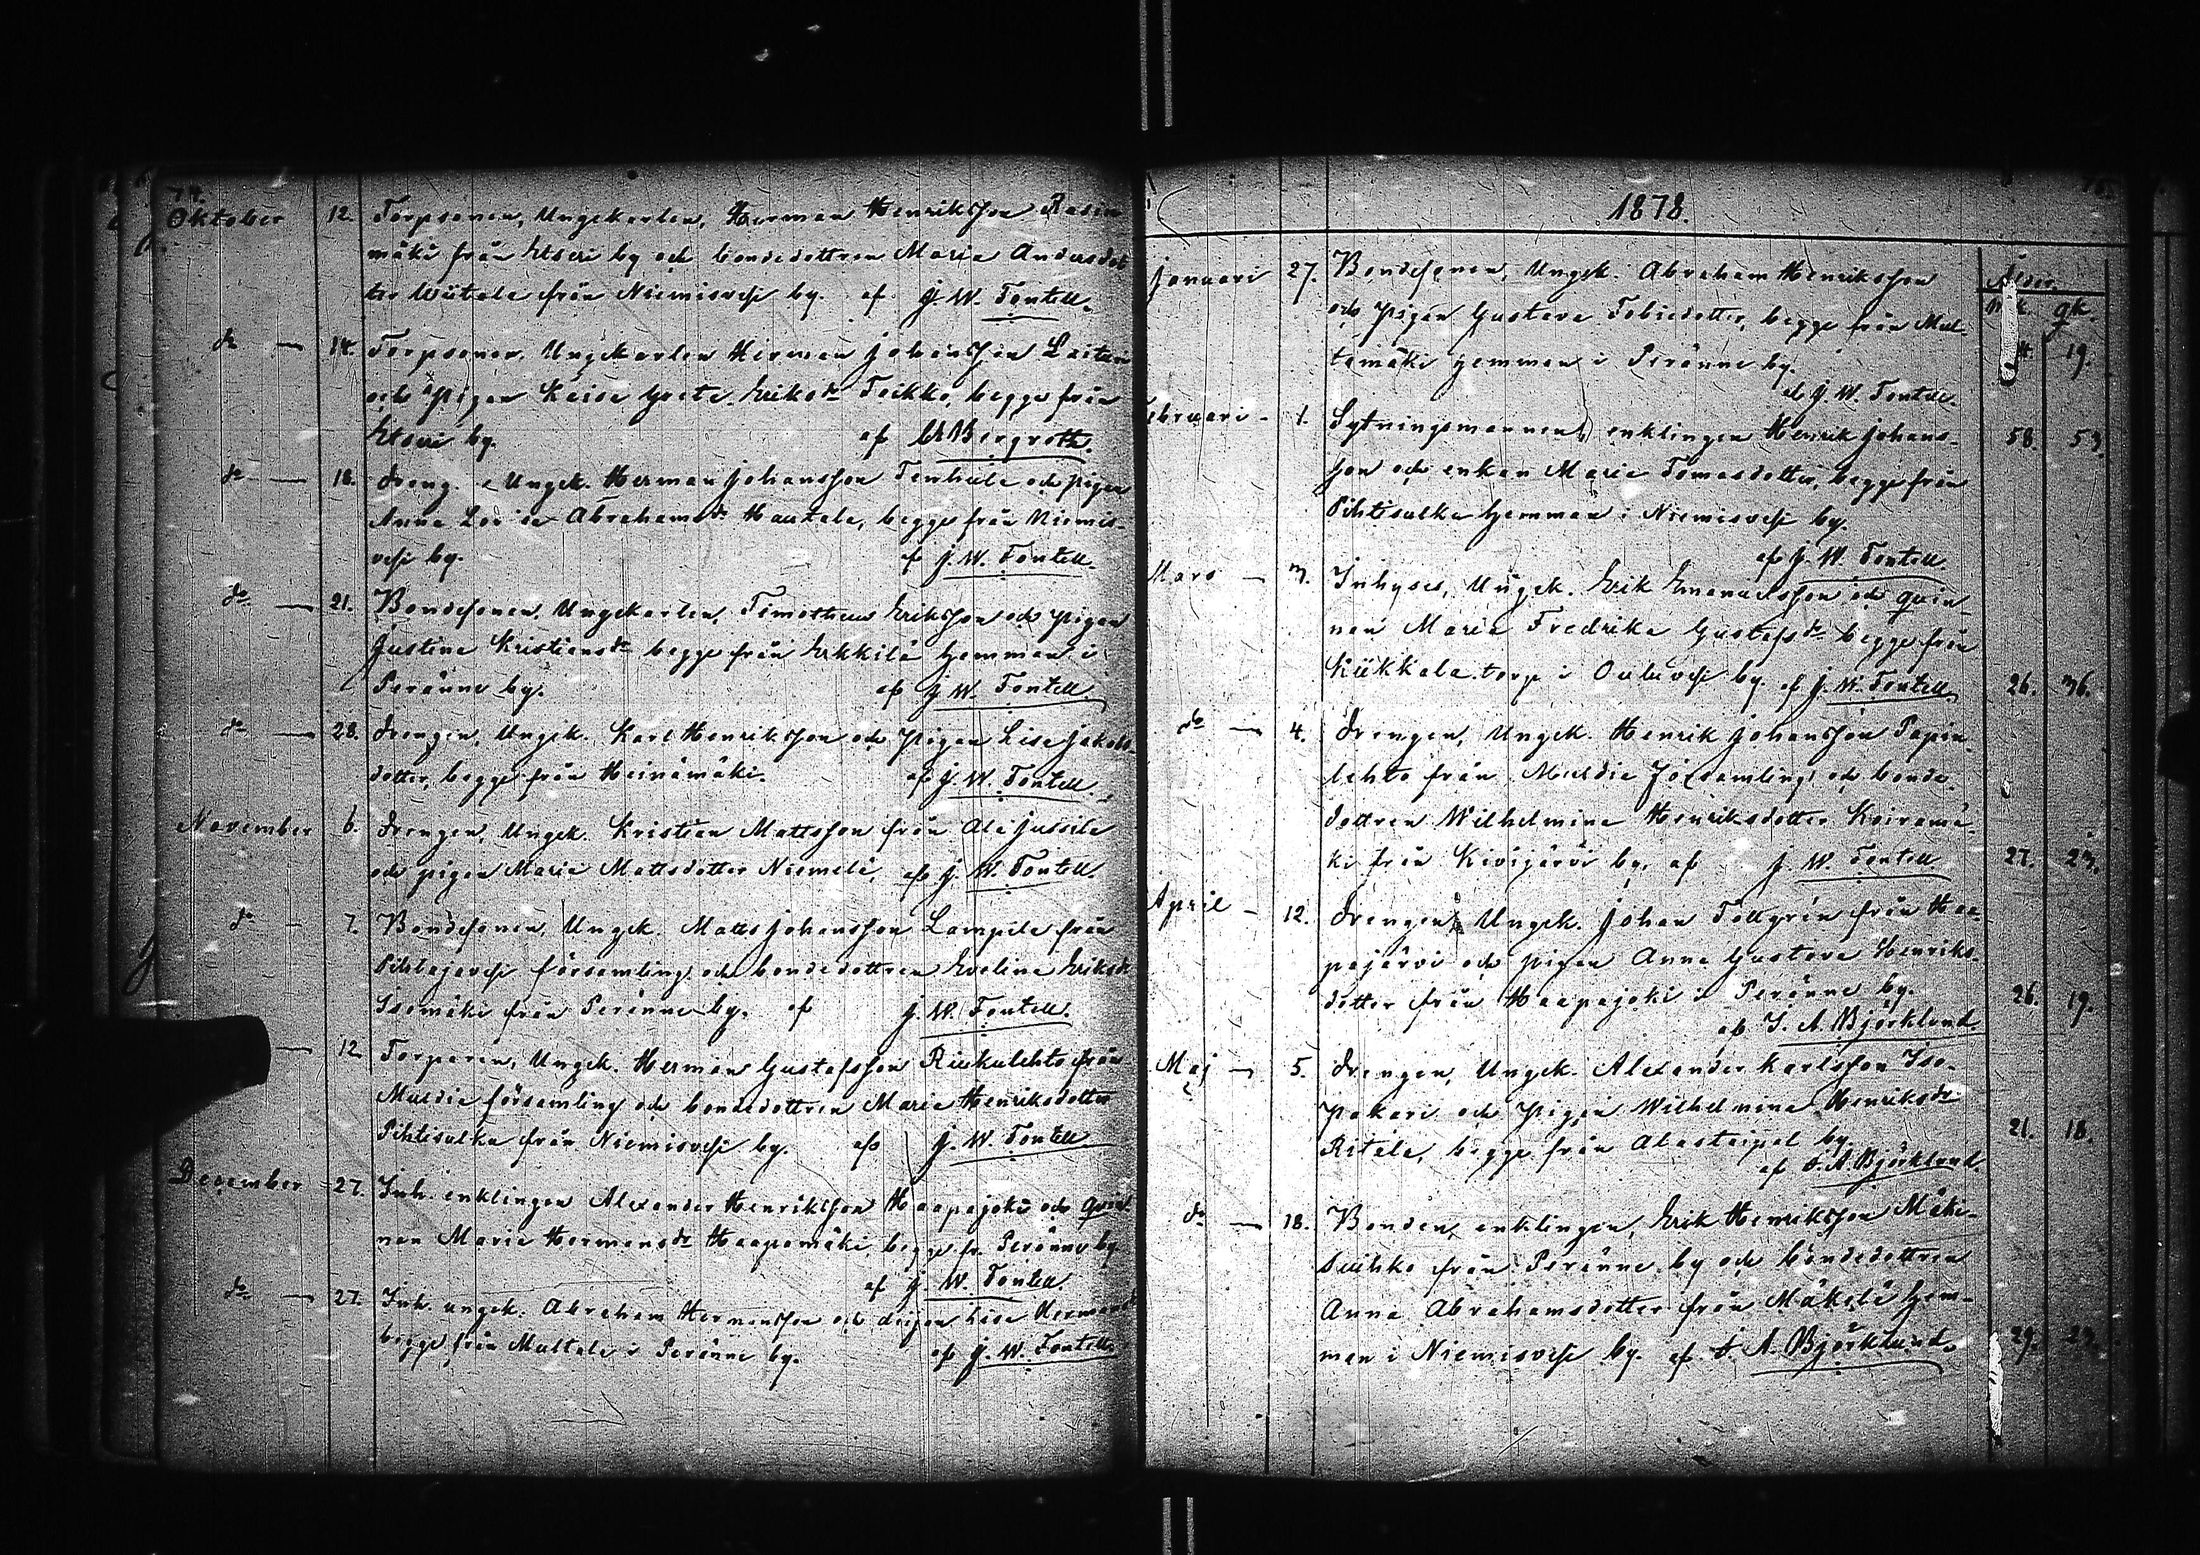 74.
Oktober 12. Torpsonen, Ungekarlen, Herman Henriksson Rasin
mäki från Etseri by och bondedottren Maria Andersdot
ter Wiitala från Niemisvesi by. af J. W. Fontell.
do — 14. Torpsonen, Ungekarlen Herman Johansson
och Pigan Kaisa Greta Eriksdr Toikko, begge från
Etseri by. af Bergroth.
do — 18. Dreng. Ungk. Herman Johansson och pigan
Anna Abrahamsdr Hautala, begge från Niemis-
vesi by. af J. W. Fontell.
do — 21. Bondesonen, Ungekarlen, Timotheus Eriksson och pigan
Justina Kristiansdr begge från Erkkilä hemman i
Peränne by. af J. W. Fontell.
do — 28. Drengen, Ungk. Karl Henriksson och Pigan Lisa Jakobs-
dotter, begge från Heinämäki. af J. W. Fontell.
November 6. Drengen, Ungk. Kristian Mattsson från Ala Jussila
och pigan Maria Mattsdotter Niemelä, af J. W. Fontell.
do — 7. Bondesonen, Ungk. Matts Johansson Lampila från
Pihlajavesi församling och bondedottren Evelina Eriksdr
Isomäki från Peränne by. af J. W. Fontell.
— 12. Torparen, Ungk. Herman Gustafsson från
Muldia församling och bondedottren Maria Henriksdotter
Pihtisulka från Niemisvesi by. af J. W. Fontell
December 27. Inh. enklingen Alexander Henriksson Haapajoki och qvin
nan Maria Hermansdr Haapamäki begge fr. Peränne by.
af J. W. Fontell
do — 27. Inh. ungk. Abraham Hermansson och Lisa Hermansdr
begge från Multala i Peränne by. af J. W. Fontell.
1878.
Ålder
mk. qk.
Januari 27. Bondesonen, Ungk. Abraham Henriksson
och Pigan Gustava Tobiedotter, begge från Mul-
tamäki hemman i Peränne by. 19.
af J. W. Fontell.
Februari — 1. Sytningsmannen, enklingen Henrik Johans- 58. 53.
son och enkan Maria Tomasdotter, begge från
Pihtisulka hemman i Niemisvesi by.
af J. W. Fontell
Mars — 3. Inhyses, Ungk. Erik Emanuelsson och qvin-
nan Maria Fredrika Gustafsdr begge från
Kükkala torp i Ouluvesi by. af J. W. Fontell 26. 36.
do — 4. Drengen, Ungk. Henrik Johansson Papin-
lehto från Muldia församling och bonde-
dottren Wilhelmina Henriksdotter Koiramä-
ki från Kivijärvi by, af J. W. Fontell 27. 23.
April — 12. Drengen, Ungk. Johan från Haa-
pajärvi och pigan Anna Gustava Henriks-
dotter från Haapajoki i Peränne by. 26. 19.
af A. Björklund
Maj — 5. Drengen, Ungk. Alexander Karlsson Iso-
Pakari och Pigan Wilhelmina Henriksdr
Ritala, begge från Alastaipal by. 21. 18.
af A. Björklund.
do — 18. Bonden, enklingen, Erik Henriksson Mäki-
från Peränne by och bondedottren
Anna Abrahamsdotter från Mäkelä hem-
man i Niemisvesi by. af A. Björklund. 29. 23.